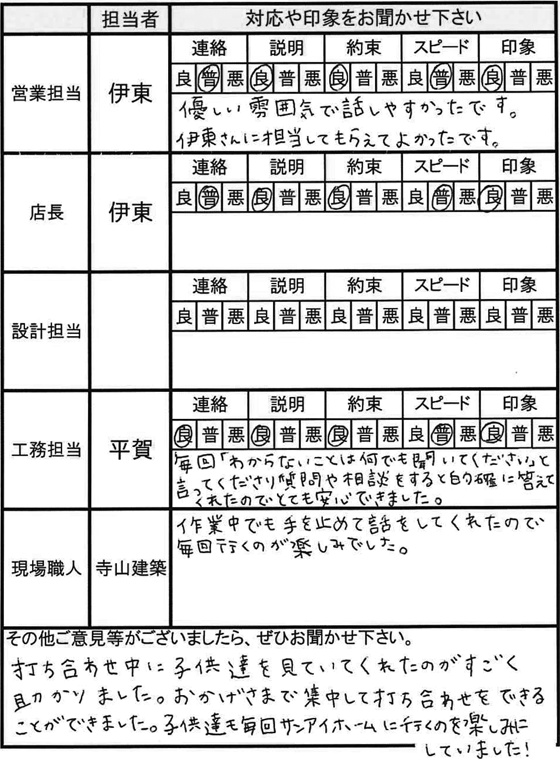 担当者 対応や印象をお聞かせ下さい
営業担当 伊東
連絡 説明 約束 スピード 印象
良 普 悪 良 普 悪 良 普 悪 良 普 悪 良 普 悪
優しい雰囲気で話しやすかったです。
伊東さんに担当してもらえてよかったです。
店長 伊東
連絡 説明 約束 スピード 印象
良 普 悪 良 普 悪 良 普 悪 良 普 悪 良 普 悪
設計担当
連絡 説明 約束 スピード 印象
良 普 悪 良 普 悪 良 普 悪 良 普 悪 良 普 悪
工務担当 平賀
連絡 説明 約束 スピード 印象
良 普 悪 良 普 悪 良 普 悪 良 普 悪 良 普 悪
毎回「わからないことは何でも聞いてください」と
言ってくださり質問や相談をすると的確に答えて
くれたのでとても安心できました。
現場職人 寺山建築
作業中でも手を止めて話をしてくれたので
毎回行くのが楽しみでした。
その他ご意見等がございましたら、ぜひお聞かせ下さい。
打ち合わせ中に子供達を見ていてくれたのがすごく
助かりました。おかげさまで集中して打ち合わせをできる
ことができました。子供達も毎回サンアイホームに行くのを楽しみに
していました!